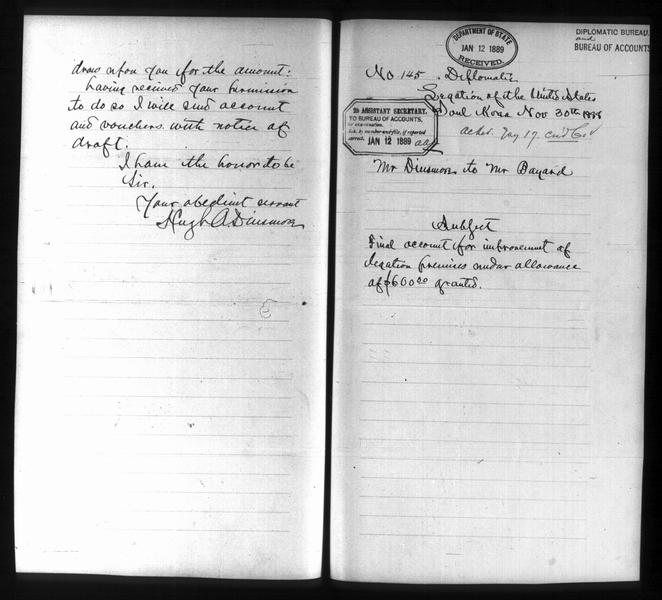 draw upon you for the amount:
having received your permission
to do so I will send account
and vouchers with notice of
draft.
I have the honor to be
Sir,
Your obedient servant
Hugh A Dinsmore
DEPARTMENT OF STATE
JAN 12 1889
RECEIVED
DIPLOMATIC BUREAU.
and
BUREAU OF ACCOUNTS
No 145. Diplomatic
Legation of the United States
Soul Korea Nov 30th 1888
2D ASSISTANT SECRETARY.
TO BUREAU OF ACCOUNTS.
for examination.
correct.
JAN 12 1889
Mr Dinsmore to Mr Bayard
Subject
Final account for improvement of
legation premises under allowance
of $600.00 granted.